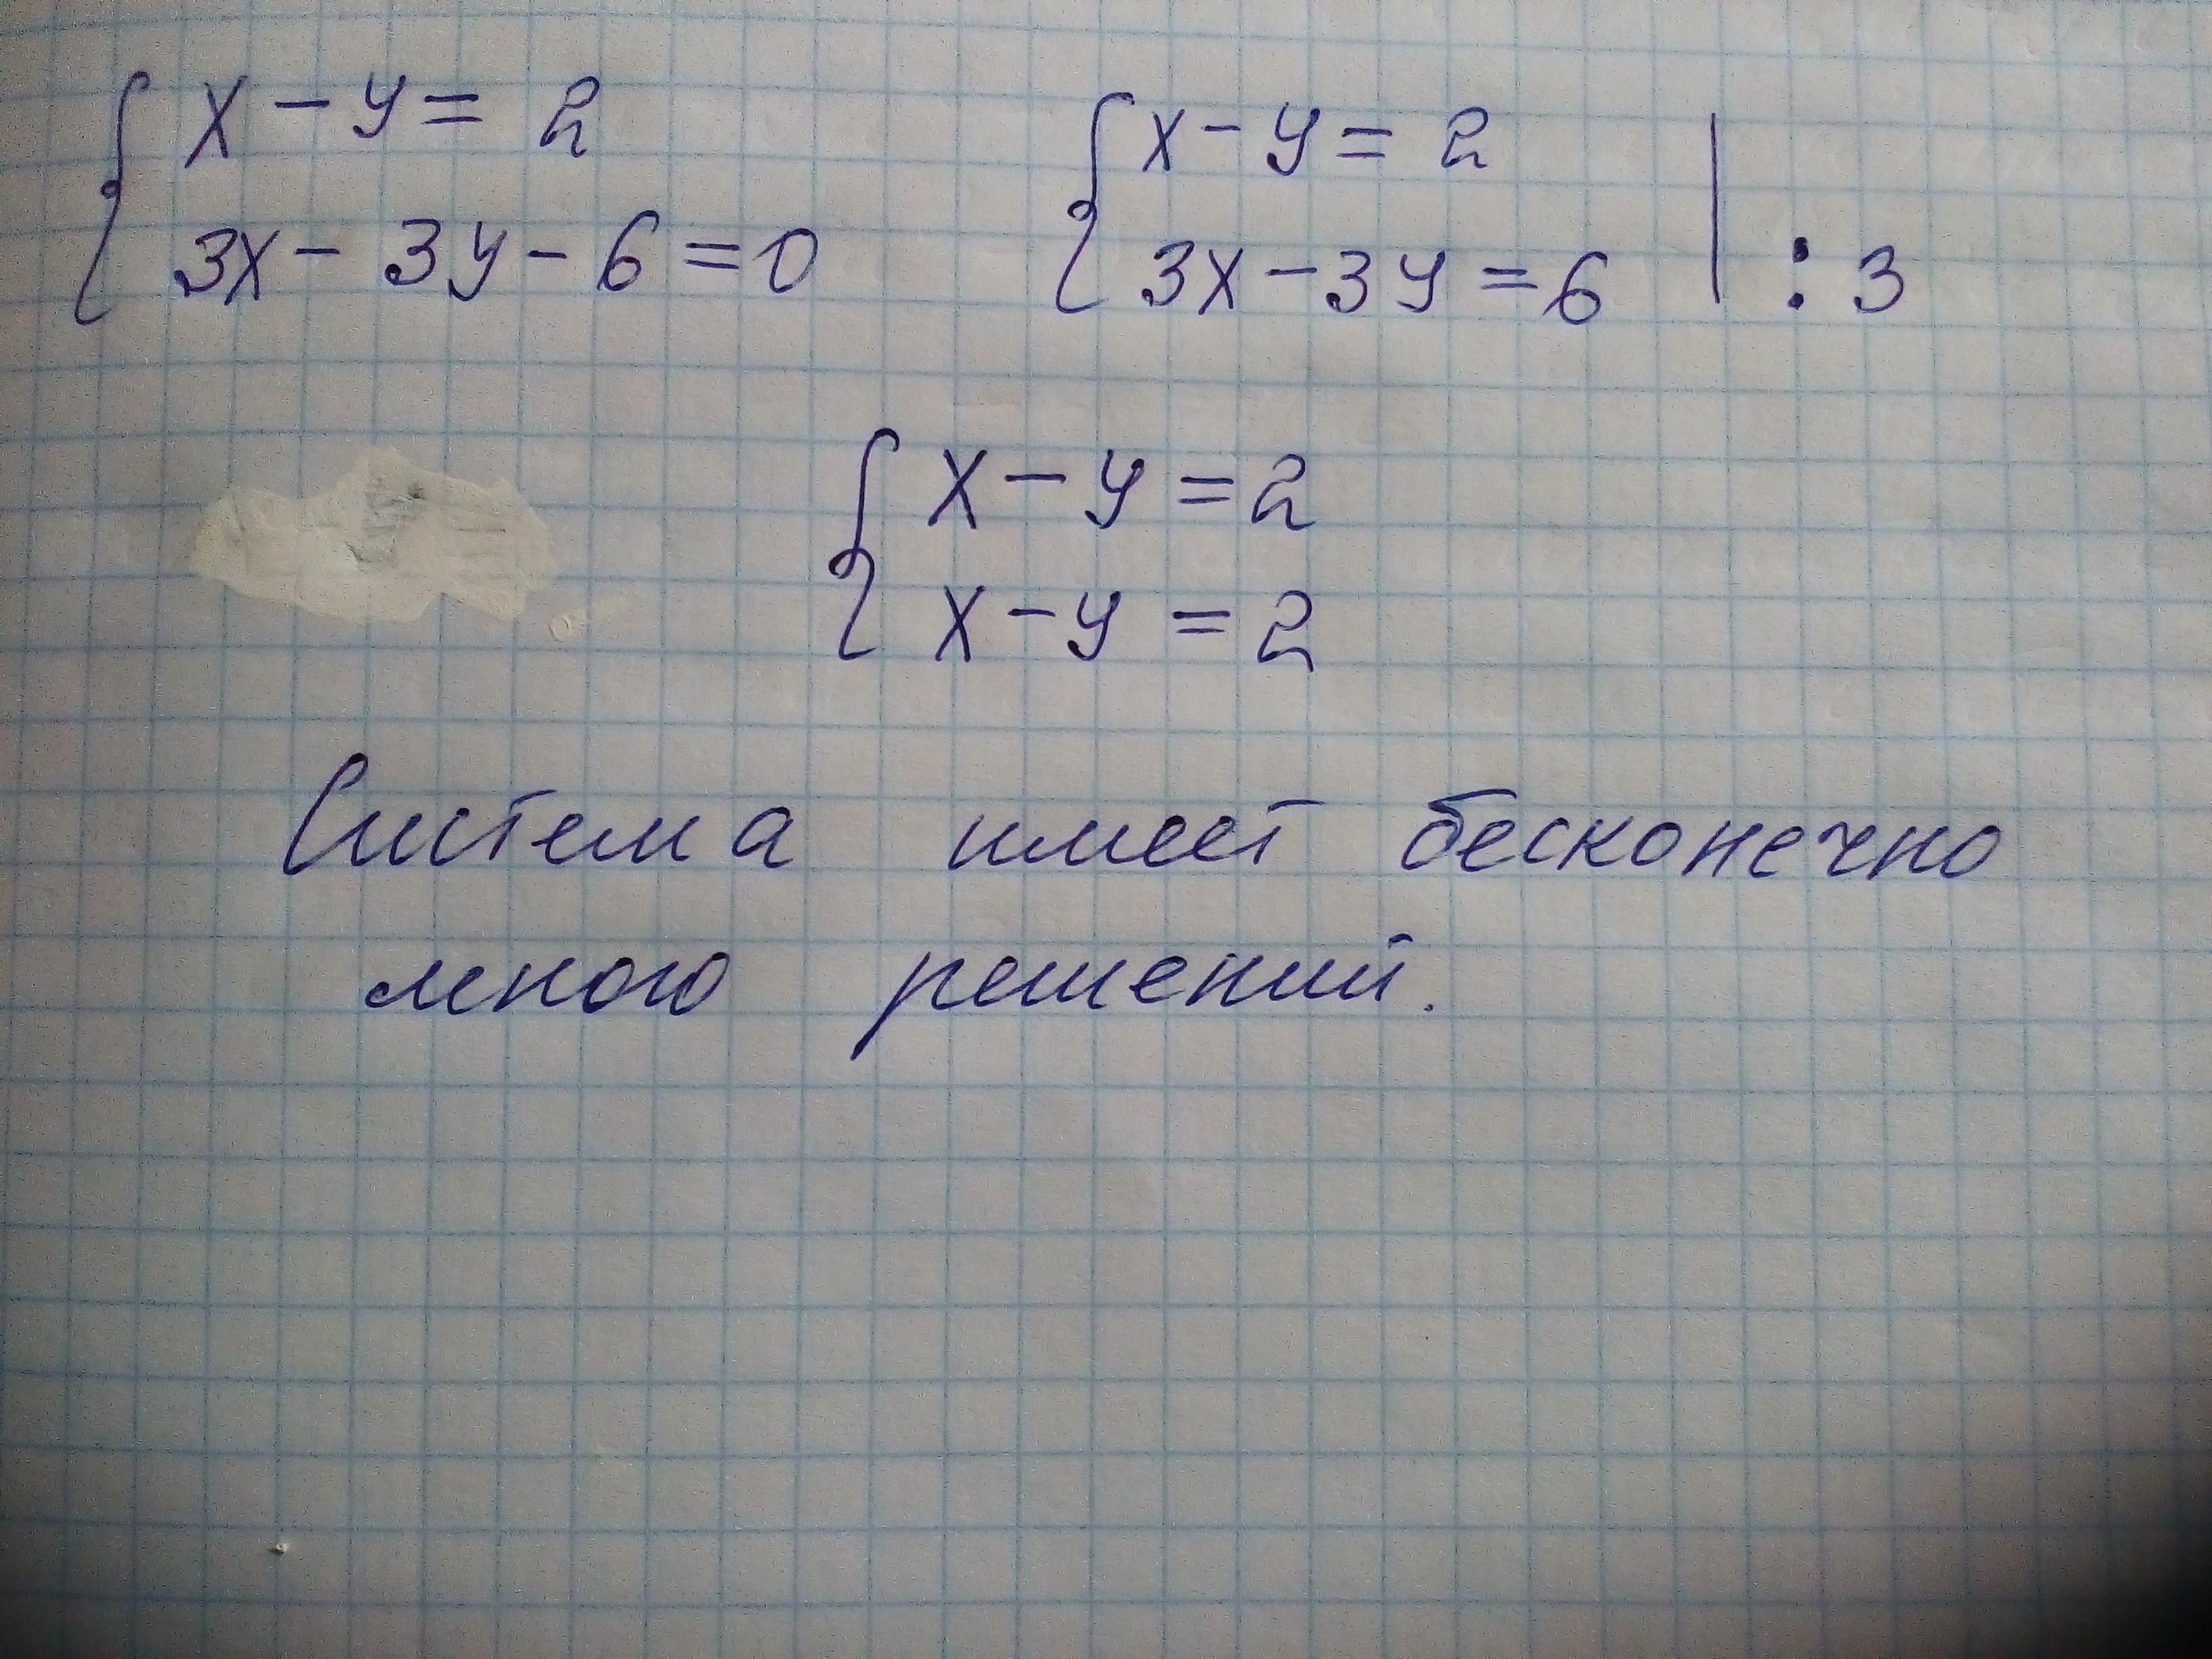 x - y = 2
3x - 3y - 6 = 0
x - y = 2
3x - 3y = 6 | : 3
x - y = 2
x - y = 2
Система имеет бесконечно
много решений.